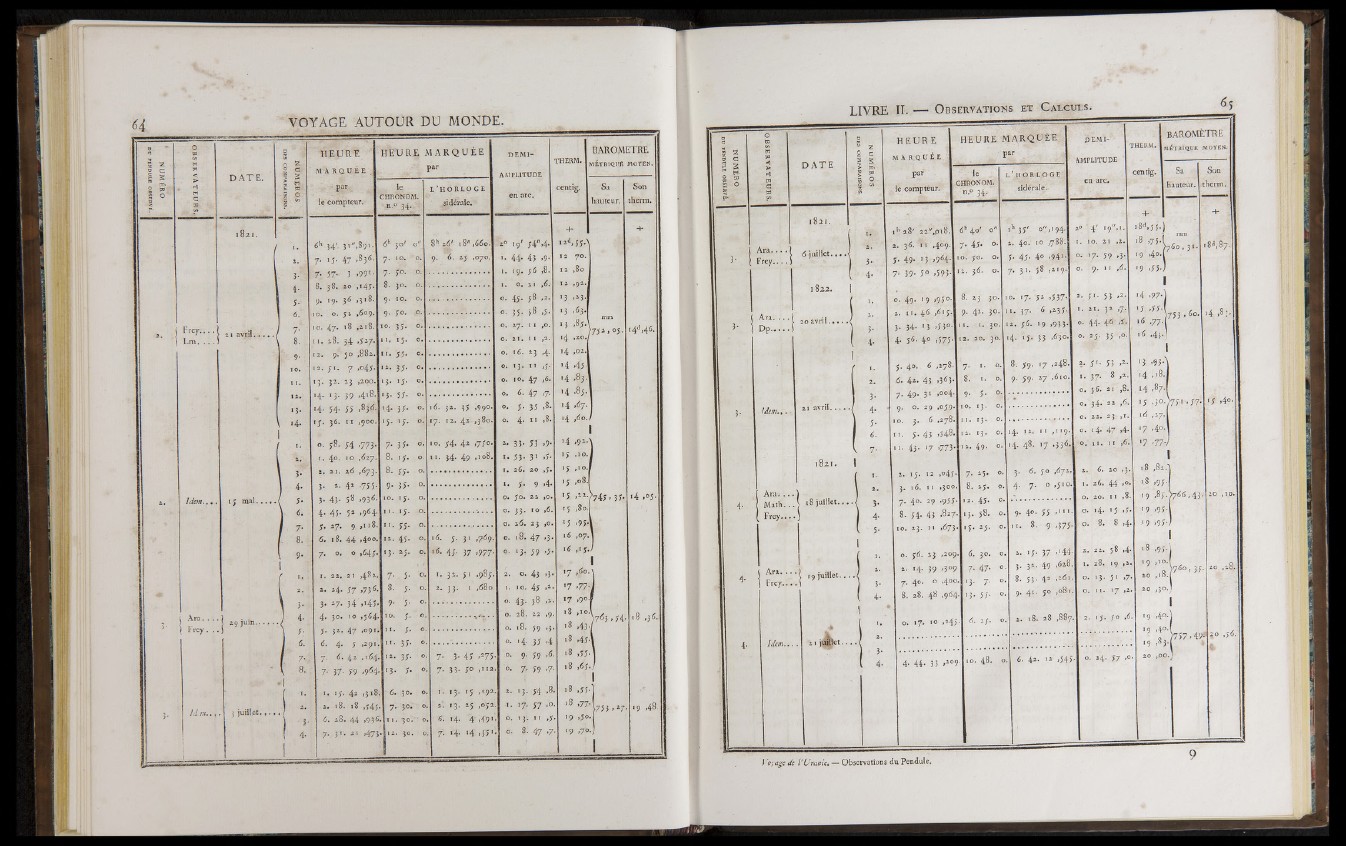 64 VOYAGE AUTOUR DU MONDE.
NUMÉRO DU PENDULE OBSERVÉ. OBSERVATEURS. DATE. NUMÉROS DES COMPARAISONS. HEURE MARQUÉE par le compteur. HEURE MARQUÉE par le CHRONOM. n.º 34. L'HORLOGE sidérale. DEMI-AMPLITUDE en arc. THERM. centig. BAROMÈTRE MÉTRIQUE MOYEN. Sa hauteur. Son therm.
1821.
2. Frey.... Lm.... 21 avril.....
1. 6h 34' 31",891. 6h 30' 0" 8h 26' 18",660. 2° 19' 54",4. 12d,55.
2. 7. 15. 47 ,836. 7. 10. 0. 9. 6. 25 ,070. 1. 44. 43 ,9. 12 70.
3. 7. 57. 3 ,991. 7. 50. 0. 1. 19. 56 ,8. 12 ,80
4. 8. 38. 20 ,145. 8. 30. 0. 1. 0. 21 ,6. 12 ,92.
5. 9. 19. 36 ,318. 9. 10. 0. 0. 45. 58 ,2. 13 ,23.
6. 10. 0. 52 ,609. 9. 50. 0. 0. 35. 38 ,5. 13 ,63.
7. 10. 47. 18 ,218. 10. 35. 0. 0. 27. 11 ,0. 13 ,85. mm 752 ,05. 14d,46.
8. 11. 28. 34 ,527. 11. 15. 0. 0. 21. 11 ,2. 14 ,20.
9. 12. 9. 50 ,882. 11. 55. 0. 0. 16. 23 ,4. 14 ,02.
10. 12. 51. 7 ,045. 12. 35. 0. 0. 13. 11 ,5. 14 ,45
11. 13. 32. 23 ,200. 13. 15. 0. 0. 10. 47 ,6. 14 ,83.
12. 14. 13. 39 ,418. 13. 55. 0. 0. 6. 47 ,7. 14 ,85.
13. 14. 54. 55 ,836. 14. 35. 0. 16. 32. 45 ,990. 0. 5. 35 ,8. 14 ,67.
14. 15. 36. 11 ,900. 15. 15. 0. 17. 12. 42 ,380. 0. 4. 11 ,8. 14 ,60.
2. Idem.... 15 mai.....
1. 0. 58. 54 ,773. 7. 35. 0. 10. 54. 42 ,750. 2. 33. 53 ,9. 14 ,92.
2. 1. 40. 10 ,627. 8. 15. 0. 11. 34. 49 ,108. 1. 53. 31 ,7. 15 ,20.
3. 2. 21. 26 ,673. 8. 55. 0. 1. 26. 20 ,5. 15 ,20.
4. 3. 2. 42 ,755. 9. 35. 0. 1. 5. 9 ,4. 15 ,08.
5. 3. 43. 58 ,936. 10. 15. 0. 0. 50. 22 ,0. 15 ,22. 745 ,35. 14 ,05.
6. 4. 45. 52 ,964. 11. 15. 0. 0. 33. 10 ,6. 15 ,80.
7. 5. 27. 9 ,118. 11. 55. 0. 0. 26. 23 ,0. 15 ,95.
8. 6. 18. 44 ,400. 12. 45. 0. 16. 5. 31 ,769. 0. 18. 47 ,3. 16 ,07.
9. 7. 0. 0 ,645. 13. 25. 0. 16. 45. 37 ,977. 0. 13. 59 ,5. 16 ,15.
3. Ara.... Frey.... 29 juin.....
1. 1. 22. 21 ,482. 7. 5. 0. 1. 32. 51 ,985. 2. 0. 43 ,3. 17 ,60.
2. 2. 24. 57 ,755. 8. 5. 0. 2. 33. 1 ,680. 1. 10. 45 ,2. 17 ,77.
3. 3. 27. 34 ,145. 9. 5. 0. 0. 43. 38 ,2. 17 ,90.
4. 4. 30. 10 ,564. 10. 5. 0. 0. 28. 22 ,9. 18 ,10. 763 ,54. 18 ,36.
5. 5. 32. 47 ,091. 11. 5. 0. 0. 18. 59 ,3. 18 ,43.
6. 6. 4. 5 ,291. 11. 35. 0. 0. 14. 35 ,4. 18 ,45.
7. 7. 6. 42 ,164. 12. 35. 0. 7. 3. 45 ,275. 0. 9. 59 ,6. 18 ,55.
8. 7. 37. 59 ,964. 13. 5. 0. 7. 33. 50 ,112. 0. 7. 59 ,7. 18 ,65.
3. Idem.... 3 juillet.....
1. 1. 15. 42 ,318. 6. 30. 0. 1. 13. 15 ,192. 2. 13. 54 ,8. 18 ,55.
2. 2. 18. 18 ,545. 7. 30. 0. 2. 13. 25 ,052. 1. 17. 57 ,0. 18 ,77. 753 ,27. 19 ,48
3. 6. 28. 44 ,936. 11. 30. 0. 6. 14. 4 ,491. 0. 13. 11 ,5. 19 ,50.
4. 7. 31. 21 ,473. 12. 30. 0. 7. 14. 14 ,351. 0. 8. 47 ,7. 19 ,70.
LIVRE II. — OBSERVATIONS ET CALCULS. 65
NUMÉRO DU PENDULE OBSERVÉ. OBSERVATEURS. DATE NUMÉROS DES COMPARAISONS. HEURE MARQUÉE par le compteur. HEURE MARQUÉE par le CHRONOM. n.º 34. L'HORLOGE sidérale. DEMI-AMPLITUDE en arc. THERM. centig. BAROMÈTRE MÉTRIQUE MOYEN. Sa hauteur. Son therm.
1821.
3. Ara.... Frey.... 6 juillet.....
1. 1h 28' 22",018. 6h 40' 0" 1h 35' 0",194. 2° 4' 19",1. 18d,55.
2. 2. 36. 11 ,409. 7. 45. 0. 2. 40. 10 ,788. 1. 10. 21 ,2. 18 ,75. mm 760 ,31. 18d,87.
3. 5. 49. 13 ,964. 10. 50. 0. 5. 45. 40 ,941. 0. 17. 59 ,3. 19 ,40.
4. 7. 39. 50 ,593. 12. 36. 0. 7. 31. 58 ,219. 0. 9. 11 ,6. 19 ,55.
1822.
3. Ara.... Dp..... 20 avril.....
1. 0. 49. 19 ,950. 8. 23. 30. 10. 17. 52 ,537. 2. 51. 53 ,2. 14 ,97.
2. 2. 11. 46 ,615. 9. 43. 30. 11. 37. 6 ,235. 1. 21. 32 ,7. 15 ,55. 753 ,60. 14 ,83.
3. 3. 34. 13 ,530. 11. 1. 30. 12. 56. 19 ,933. 0. 44. 46 ,6. 16 ,77.
4. 4. 56. 40 ,575. 12. 20. 30. 14. 15. 33 ,630. 0. 25. 35 ,0. 16 ,43.
3. Idem.... 21 avril.....
1. 5. 40. 6 ,278. 7. 1. 0. 8. 59. 17 ,248. 2. 51. 53 ,2. 13 ,93.
2. 6. 42. 43 ,363. 8. 1. 0. 9. 59. 27 ,610. 1. 37. 8 ,2. 14 ,18.
3. 7. 49. 31 ,904. 9. 5. 0. 0. 56. 21 ,8. 14 ,87.
4. 9. 0. 29 ,059. 10. 13. 0. 0. 34. 22 ,6. 15 ,30. 751 ,57. 15 ,40.
5. 10. 3. 6 ,278. 11. 13. 0. 0. 22. 23 ,1. 16 ,27.
6. 11. 5. 43 ,548. 12. 13. 0. 14. 12. 11 ,119. 0. 14. 47 ,4. 17 ,40.
7. 11. 43. 17 ,773. 12. 49. 0. 14. 48. 17 ,336. 0. 11. 11 ,6. 17 ,77.
1821.
4. Ara.... Math... Frey.... 18 juillet....
1. 2. 15. 12 ,045. 7. 25. 0. 3. 6. 50 ,672. 2. 6. 20 ,3. 18 ,82.
2. 3. 16. 11 ,300. 8. 25. 0. 4. 7. 0 ,510. 1. 26. 44 ,0. 18 ,95.
3. 7. 40. 29 ,955. 12. 45. 0. 0. 20. 11 ,8. 19 ,85. 766 ,43. 20 ,10.
4. 8. 54. 43 ,827. 13. 58. 0. 9. 40. 55 ,111. 0. 14. 15 ,5. 19 ,95.
5. 10. 23. 11 ,673. 15. 25. 0. 11. 8. 9 ,375. 0. 8. 8 ,4. 19 ,95.
4. Ara.... Frey.... 19 juillet....
1. 0. 56. 23 ,209. 6. 30. 0. 2. 15. 37 ,144. 2. 22. 58 ,4. 18 ,95.
2. 2. 14. 39 ,509. 7. 47. 0. 3. 32. 49 ,628. 1. 28. 19 ,2. 19 ,10. 760 ,35. 20 ,28.
3. 7. 40. 0 ,400. 13. 7. 0. 8. 53. 42 ,261. 0. 13. 51 ,7. 20 ,18.
4. 8. 28. 48 ,964. 13. 55. 0. 9. 41. 50 ,081. 0. 11. 17 ,2. 20 ,30.
4. Idem.... 21 juillet....
1. 0. 17. 10 ,243. 6. 25. 0. 2. 18. 28 ,887. 2. 15. 50 ,6. 19 ,40.
2. 19 ,40. 757 ,49. 20 ,56.
3. 19 ,83.
4. 4. 44. 33 ,209. 10. 48. 0. 6. 42. 12 ,545. 0. 24. 57 ,0. 20 ,00.
Voyage de l'Uranie. — Observations du Pendule. 9